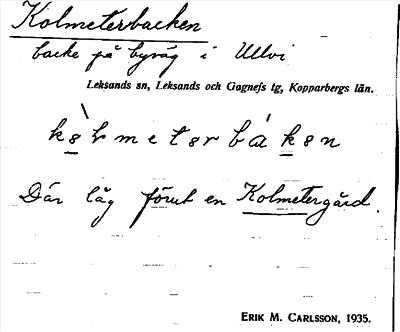 Kolmeterbacken
backe på byväg i Ullvi
Leksands sn, Leksands och Gagnefs tg, Kopparbergs län.
Där låg förut en Kolmetergård.
ERIK M. CARLSSON, 1935.